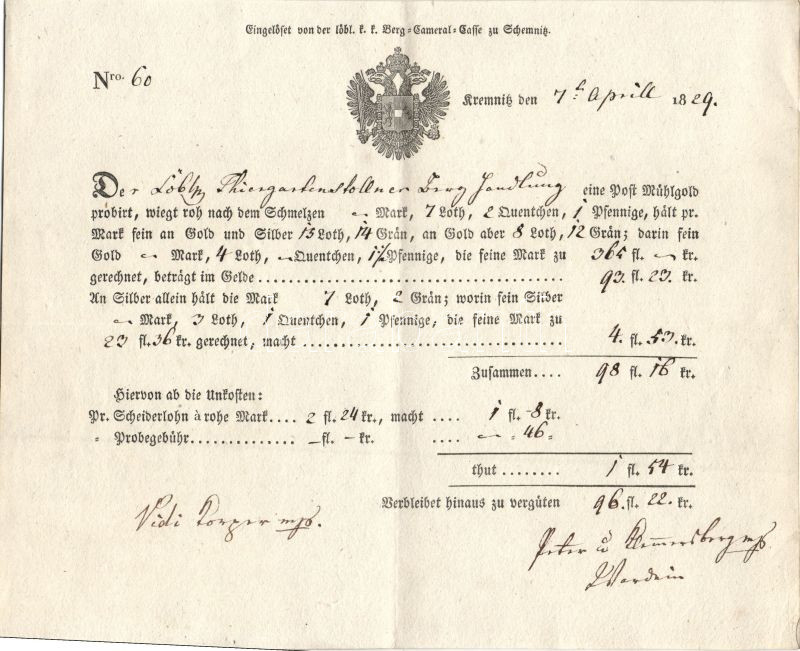 Eingelöset von der löbl. k. k. Berg-Cameral-Casse zu Schemnitz.
Nro. 60
Kremnitz den 7t Aprill 1829.
Der Löbln Thiergartenstollner Berg Handlung eine Post Mühlgold
probirt, wiegt roh nach dem Schmelzen ~ Mark, 7 Loth, 2 Quentchen, 1 Pfennige, hält pr.
Mark fein an Gold und Silber 15 Loth, 14 Grän, an Gold aber 8 Loth, 12 Grän; darin fein
Gold ~ Mark, 4 Loth, ~ Quentchen, 1½ Pfennige, die feine Mark zu 365 fl. ~ kr.
gerechnet, beträgt im Gelde 93. fl. 23. kr.
An Silber allein hält die Mark 7 Loth, 2 Grän; worin fein Silber
~ Mark, 3 Loth, 1 Quentchen, 1 Pfennige, die feine Mark zu
23 fl. 36 kr. gerechnet, macht 4. fl. 53. kr.
Zusammen.... 98 fl. 16 kr.
Hiervon ab die Unkosten:
Pr. Scheiderlohn à rohe Mark.... 2 fl. 24 kr., macht .... 1 fl. 8 kr.
" Probegebühr.............. – fl. – kr. .... ~ " 46 "
thut ........ 1 fl. 54 kr.
Verbleibet hinaus zu vergüten 96. fl. 22. kr.
Vidi mp.
Peter v mp
Wardein